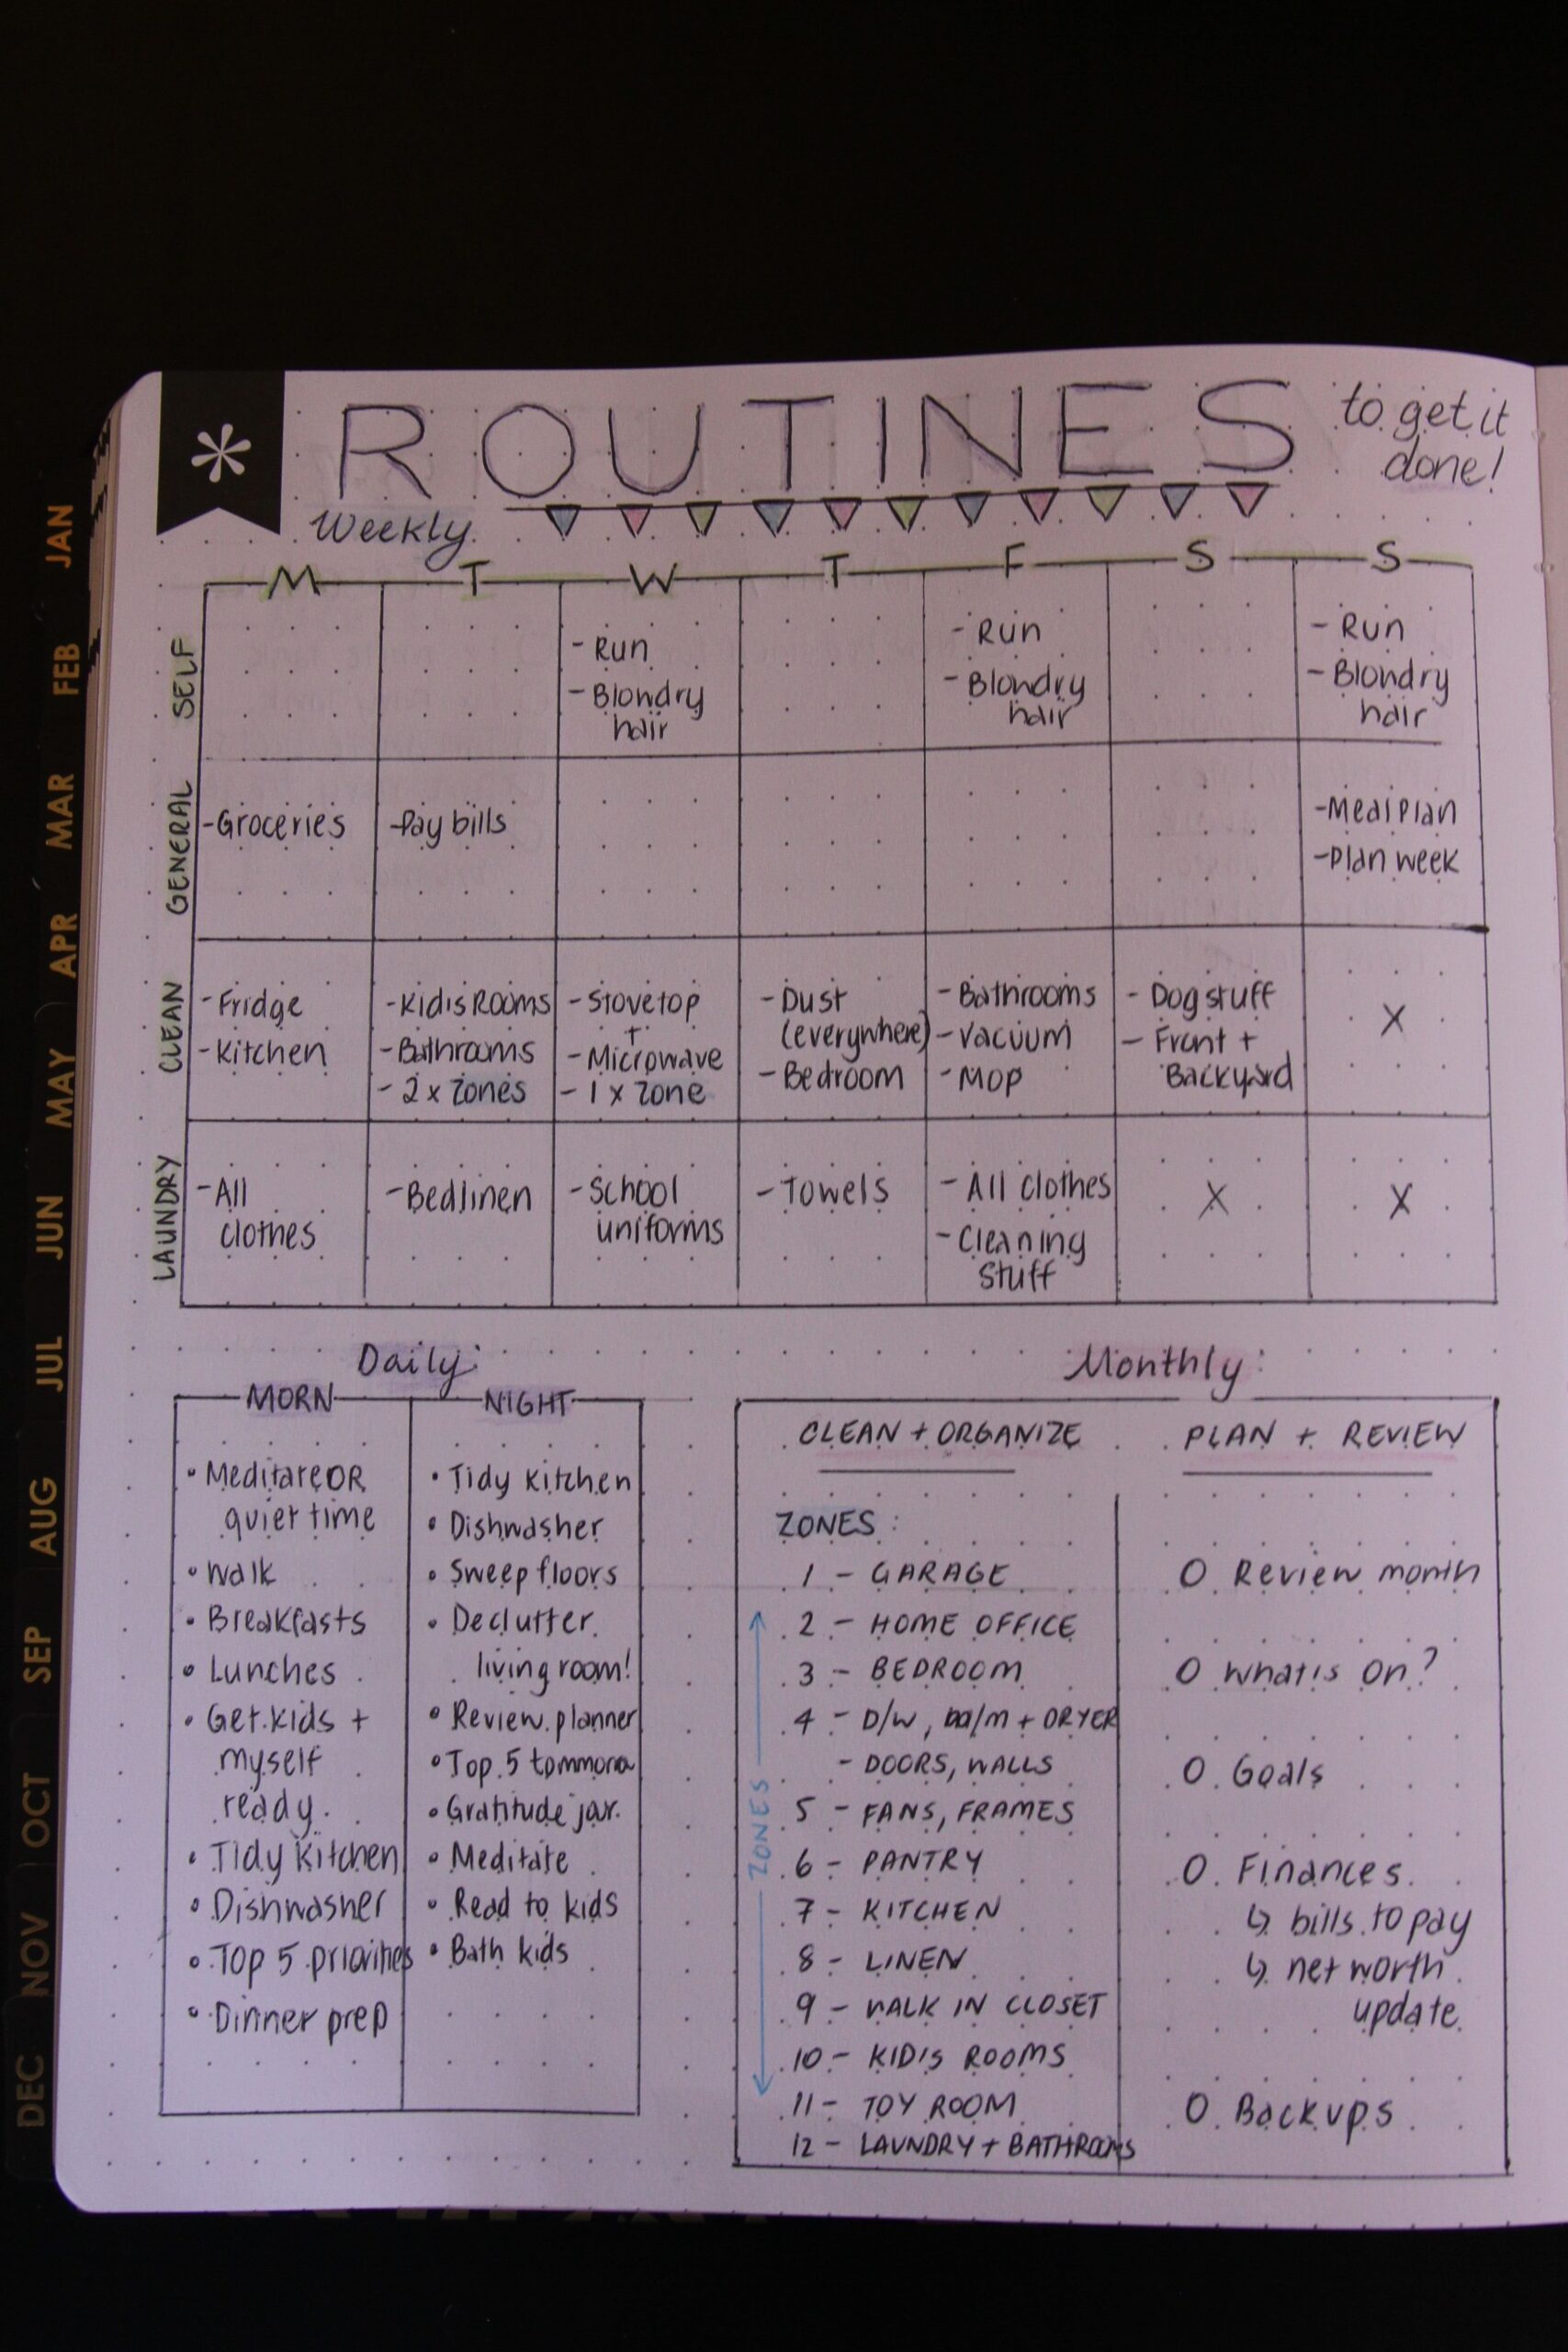 *
ROUTINES
to get it
done!
Weekly
M T W T F S S
SELF
- Run
- Blowdry
hair
- Run
- Blowdry
hair
- Run
- Blowdry
hair
GENERAL
- Groceries
- Pay bills
- Meal Plan
- Plan week
CLEAN
- Fridge
- Kitchen
- Kid's Rooms
- Bathrooms
- 2 x Zones
- Stovetop
+
- Microwave
- 1 x zone
- Dust
(everywhere)
- Bedroom
- Bathrooms
- Vacuum
- Mop
- Dog stuff
- Front +
Backyard
X
LAUNDRY
- All
clothes
- Bedlinen
- School
uniforms
- Towels
- All clothes
- Cleaning
stuff
X
X
Daily:
MORN
• Meditate OR
quiet time
• Walk
• Breakfasts
• Lunches
• Get kids +
myself
ready.
• Tidy Kitchen
• Dishwasher
• Top 5 priorities
• Dinner prep
NIGHT
• Tidy kitchen
• Dishwasher
• Sweep floors
• Declutter
living room!
• Review planner
• Top 5
• Gratitude jar.
• Meditate
• Read to kids
• Bath kids
Monthly:
CLEAN + ORGANIZE
ZONES:
1 - GARAGE
2 - HOME OFFICE
3 - BEDROOM
4 - D/W, + DRYER
- DOORS, WALLS
5 - FANS, FRAMES
6 - PANTRY
7 - KITCHEN
8 - LINEN
9 - WALK IN CLOSET
10 - KID'S ROOMS
11 - TOY ROOM
12 - LAUNDRY + BATHROOMS
ZONES
PLAN + REVIEW
O Review month
O What's on?
O Goals
O Finances
↳ bills to pay
↳ net worth
update
O Backups
JAN
FEB
MAR
APR
MAY
JUN
JUL
AUG
SEP
OCT
NOV
DEC